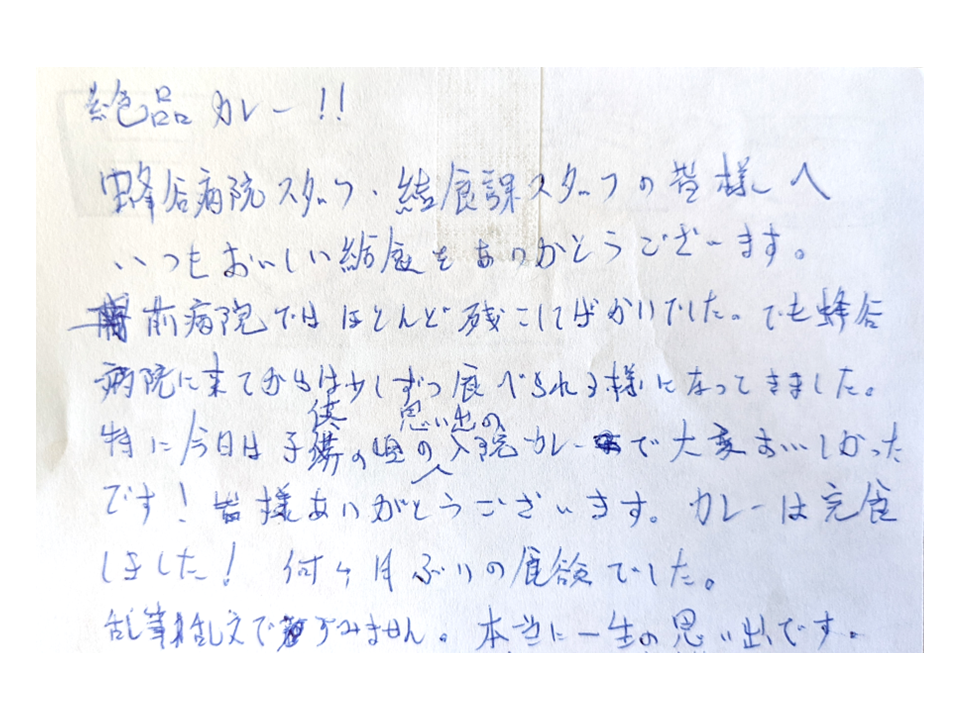 絶品カレー!!
蜂谷病院スタッフ・給食課スタッフの皆様へ
いつもおいしい給食をありがとうございます。
前病院ではほとんど残こしてばかりでした。でも蜂谷
病院に来てからは少しずつ食べられる様になってきました。
特に今日は子供の頃の思い出の入院カレーで大変おいしかった
です!皆様ありがとうございます。カレーは完食
しました!何ヶ月ぶりの食欲でした。
乱筆乱文ですみません。本当に一生の思い出です。